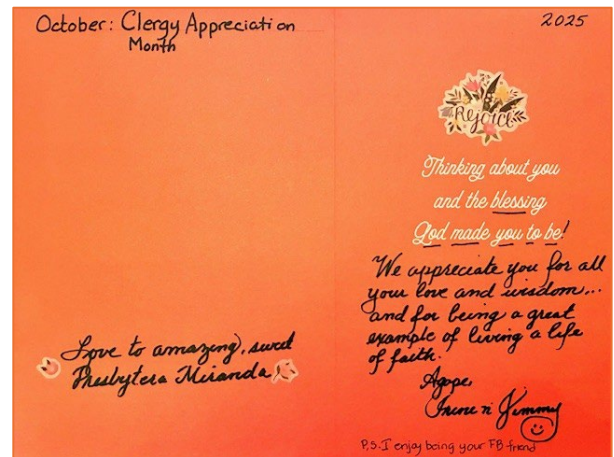 October: Clergy Appreciation
Month
Love to amazing, sweet
Presbytera Miranda!
2025
Rejoice
Thinking about you
and the blessing
God made you to be!
We appreciate you for all
your love and wisdom...
and for being a great
example of living a life
of faith.
Agape,
Irene n' Jimmy
P.S. I enjoy being your FB friend